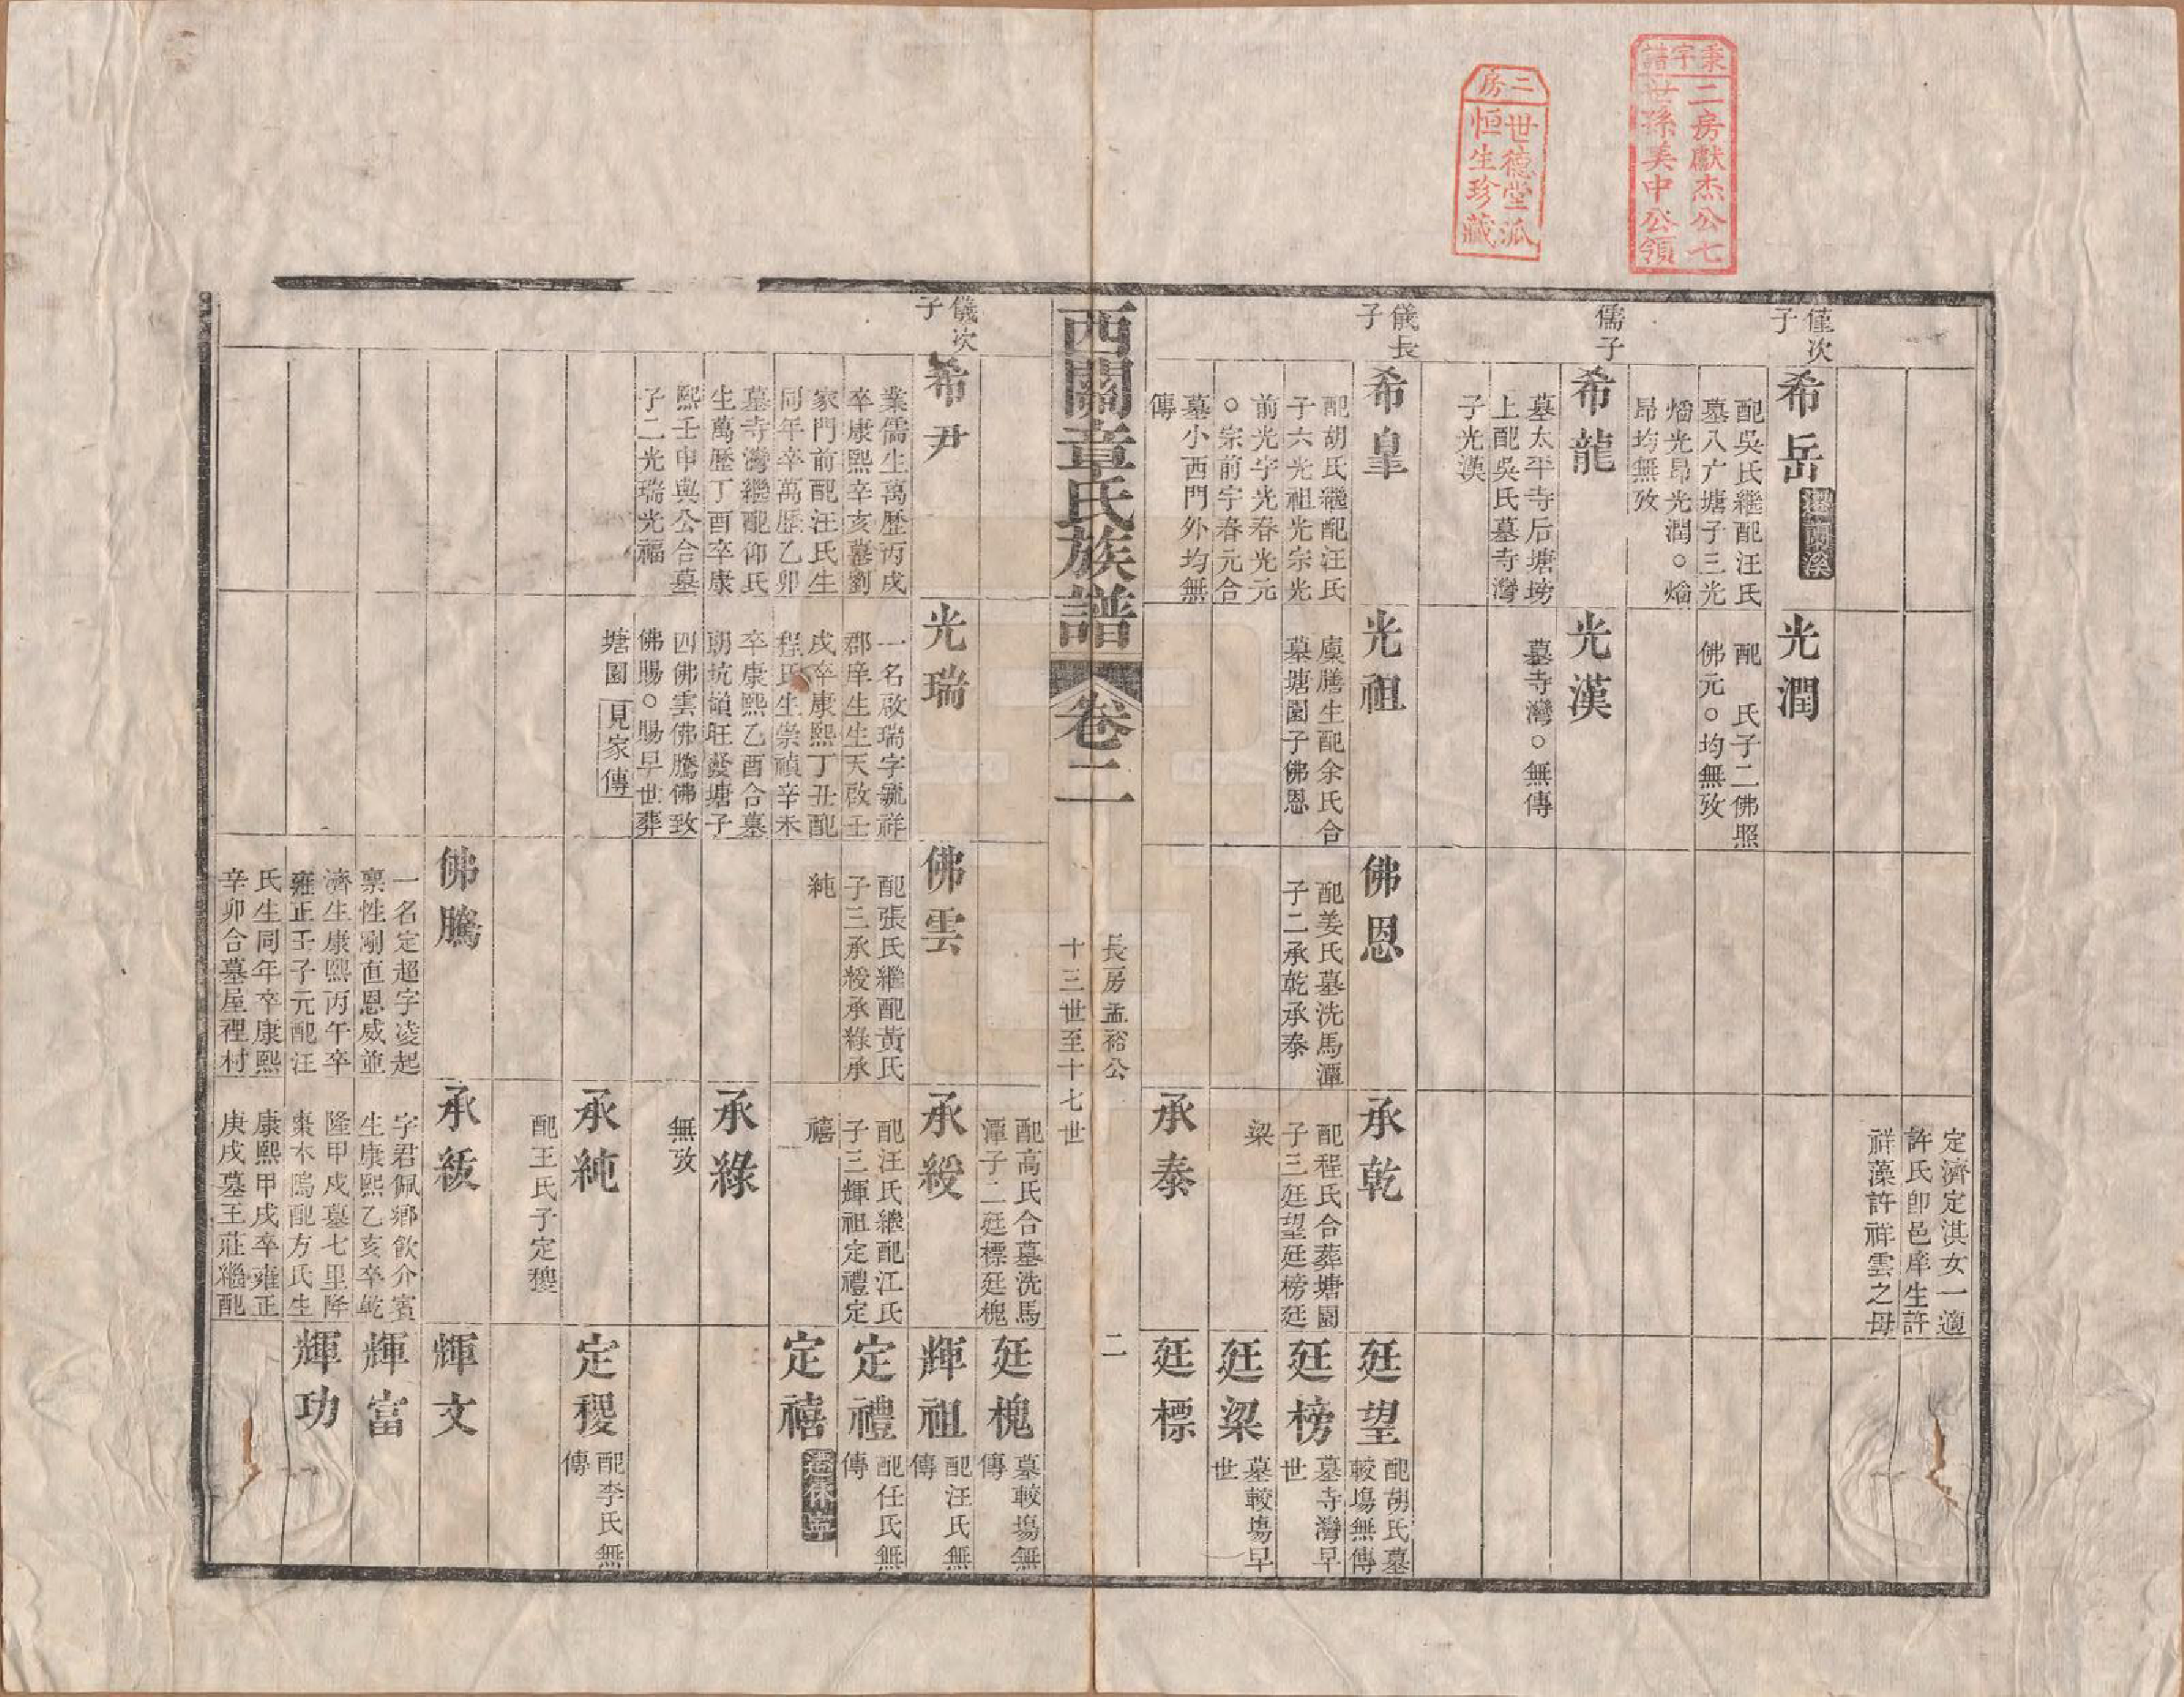 秉字譜
二房獻杰公七
世孫美中公領
二房
世德堂派
恒生珍藏
定濟定淇女一適
許氏卽邑庠生許
祥藻許祥雲之母
僅次
子
希岳
遷蘭溪
配吳氏繼配汪氏
墓入亠塘子三光
燔光昂光潤○燔
昂均無攷
光潤
配 氏子二佛照
佛元○均無攷
儒子
希龍
墓太平寺后塘塝
上配吳氏墓寺灣
子光漢
光漢
墓寺灣○無傳
儀長
子
希皇
配胡氏繼配汪氏
子六光祖光宗光
前光宇光春光元
○宗前宇春元合
墓小西門外均無
傳
光祖
廩膳生配余氏合
墓塘園子佛恩
佛恩
配姜氏墓洗馬潭
子二承乾承泰
承乾
配程氏合葬塘園
子三廷望廷榜廷
梁
廷望
配胡氏墓
較塲無傳
廷榜
墓寺灣早
世
廷梁
墓較塲早
世
承泰
配高氏合墓洗馬
潭子二廷標廷槐
廷標
西關章氏族譜
卷二
長房孟裕公
十三世至十七世
二
廷槐
墓較塲無
傳
儀次
子
希尹
業儒生萬歷丙戌
卒康熙辛亥墓劉
家門前配汪氏生
同年卒萬歷乙卯
墓寺灣繼配仰氏
生萬歷丁酉卒康
熙壬申與公合墓
子二光瑞光福
光瑞
一名啟瑞字毓祥
郡庠生生天啟壬
戌卒康熙丁丑配
程氏生崇禎辛未
卒康熙乙酉合墓
朝坑嶺旺發塘子
四佛雲佛騰佛致
佛賜○賜早世葬
塘園
見家傳
佛雲
配張氏繼配黃氏
子三承綬承綠承
純
承綬
配汪氏繼配江氏
子三輝祖定禮定
禧
輝祖
配汪氏無
傳
定禮
配任氏無
傳
定禧
遷休寧
承綠
無攷
承純
配王氏子定稷
定稷
配李氏無
傳
佛騰
一名定超字凌起
稟性剛直恩威並
濟生康熙丙午卒
雍正壬子元配汪
氏生同年卒康熙
辛卯合墓屋裡村
承紱
字君佩鄉飲介賓
生康熙乙亥卒乾
隆甲戌墓七里降
棗木塢配方氏生
康熙甲戌卒雍正
庚戌墓王莊繼配
輝文
輝富
輝功